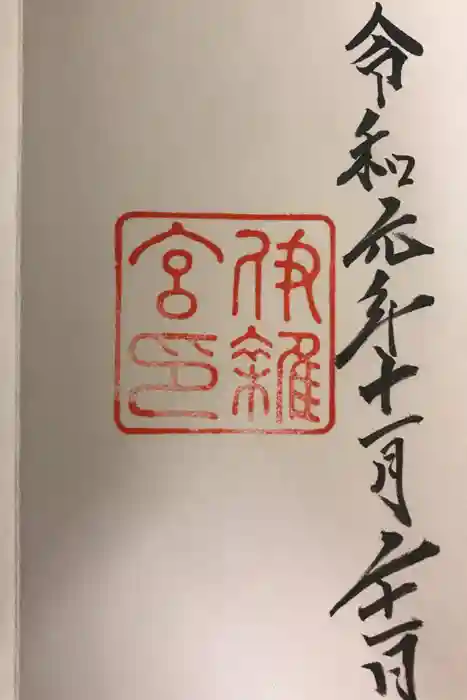 令和元年十一月二十一日
伊雜
宮印